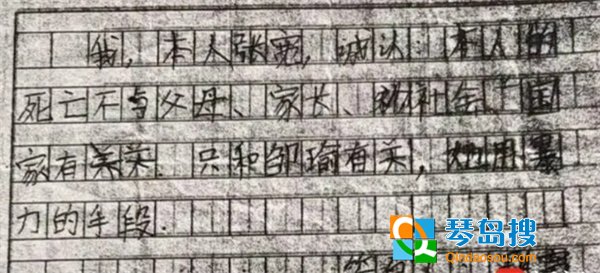 我，本人张宽，诚认：本人的
死亡不与父母、家长、和社会、国
家有关关．只和邹瑜有关，她用暴
力的手段．
琴岛搜
Qindaosou.com